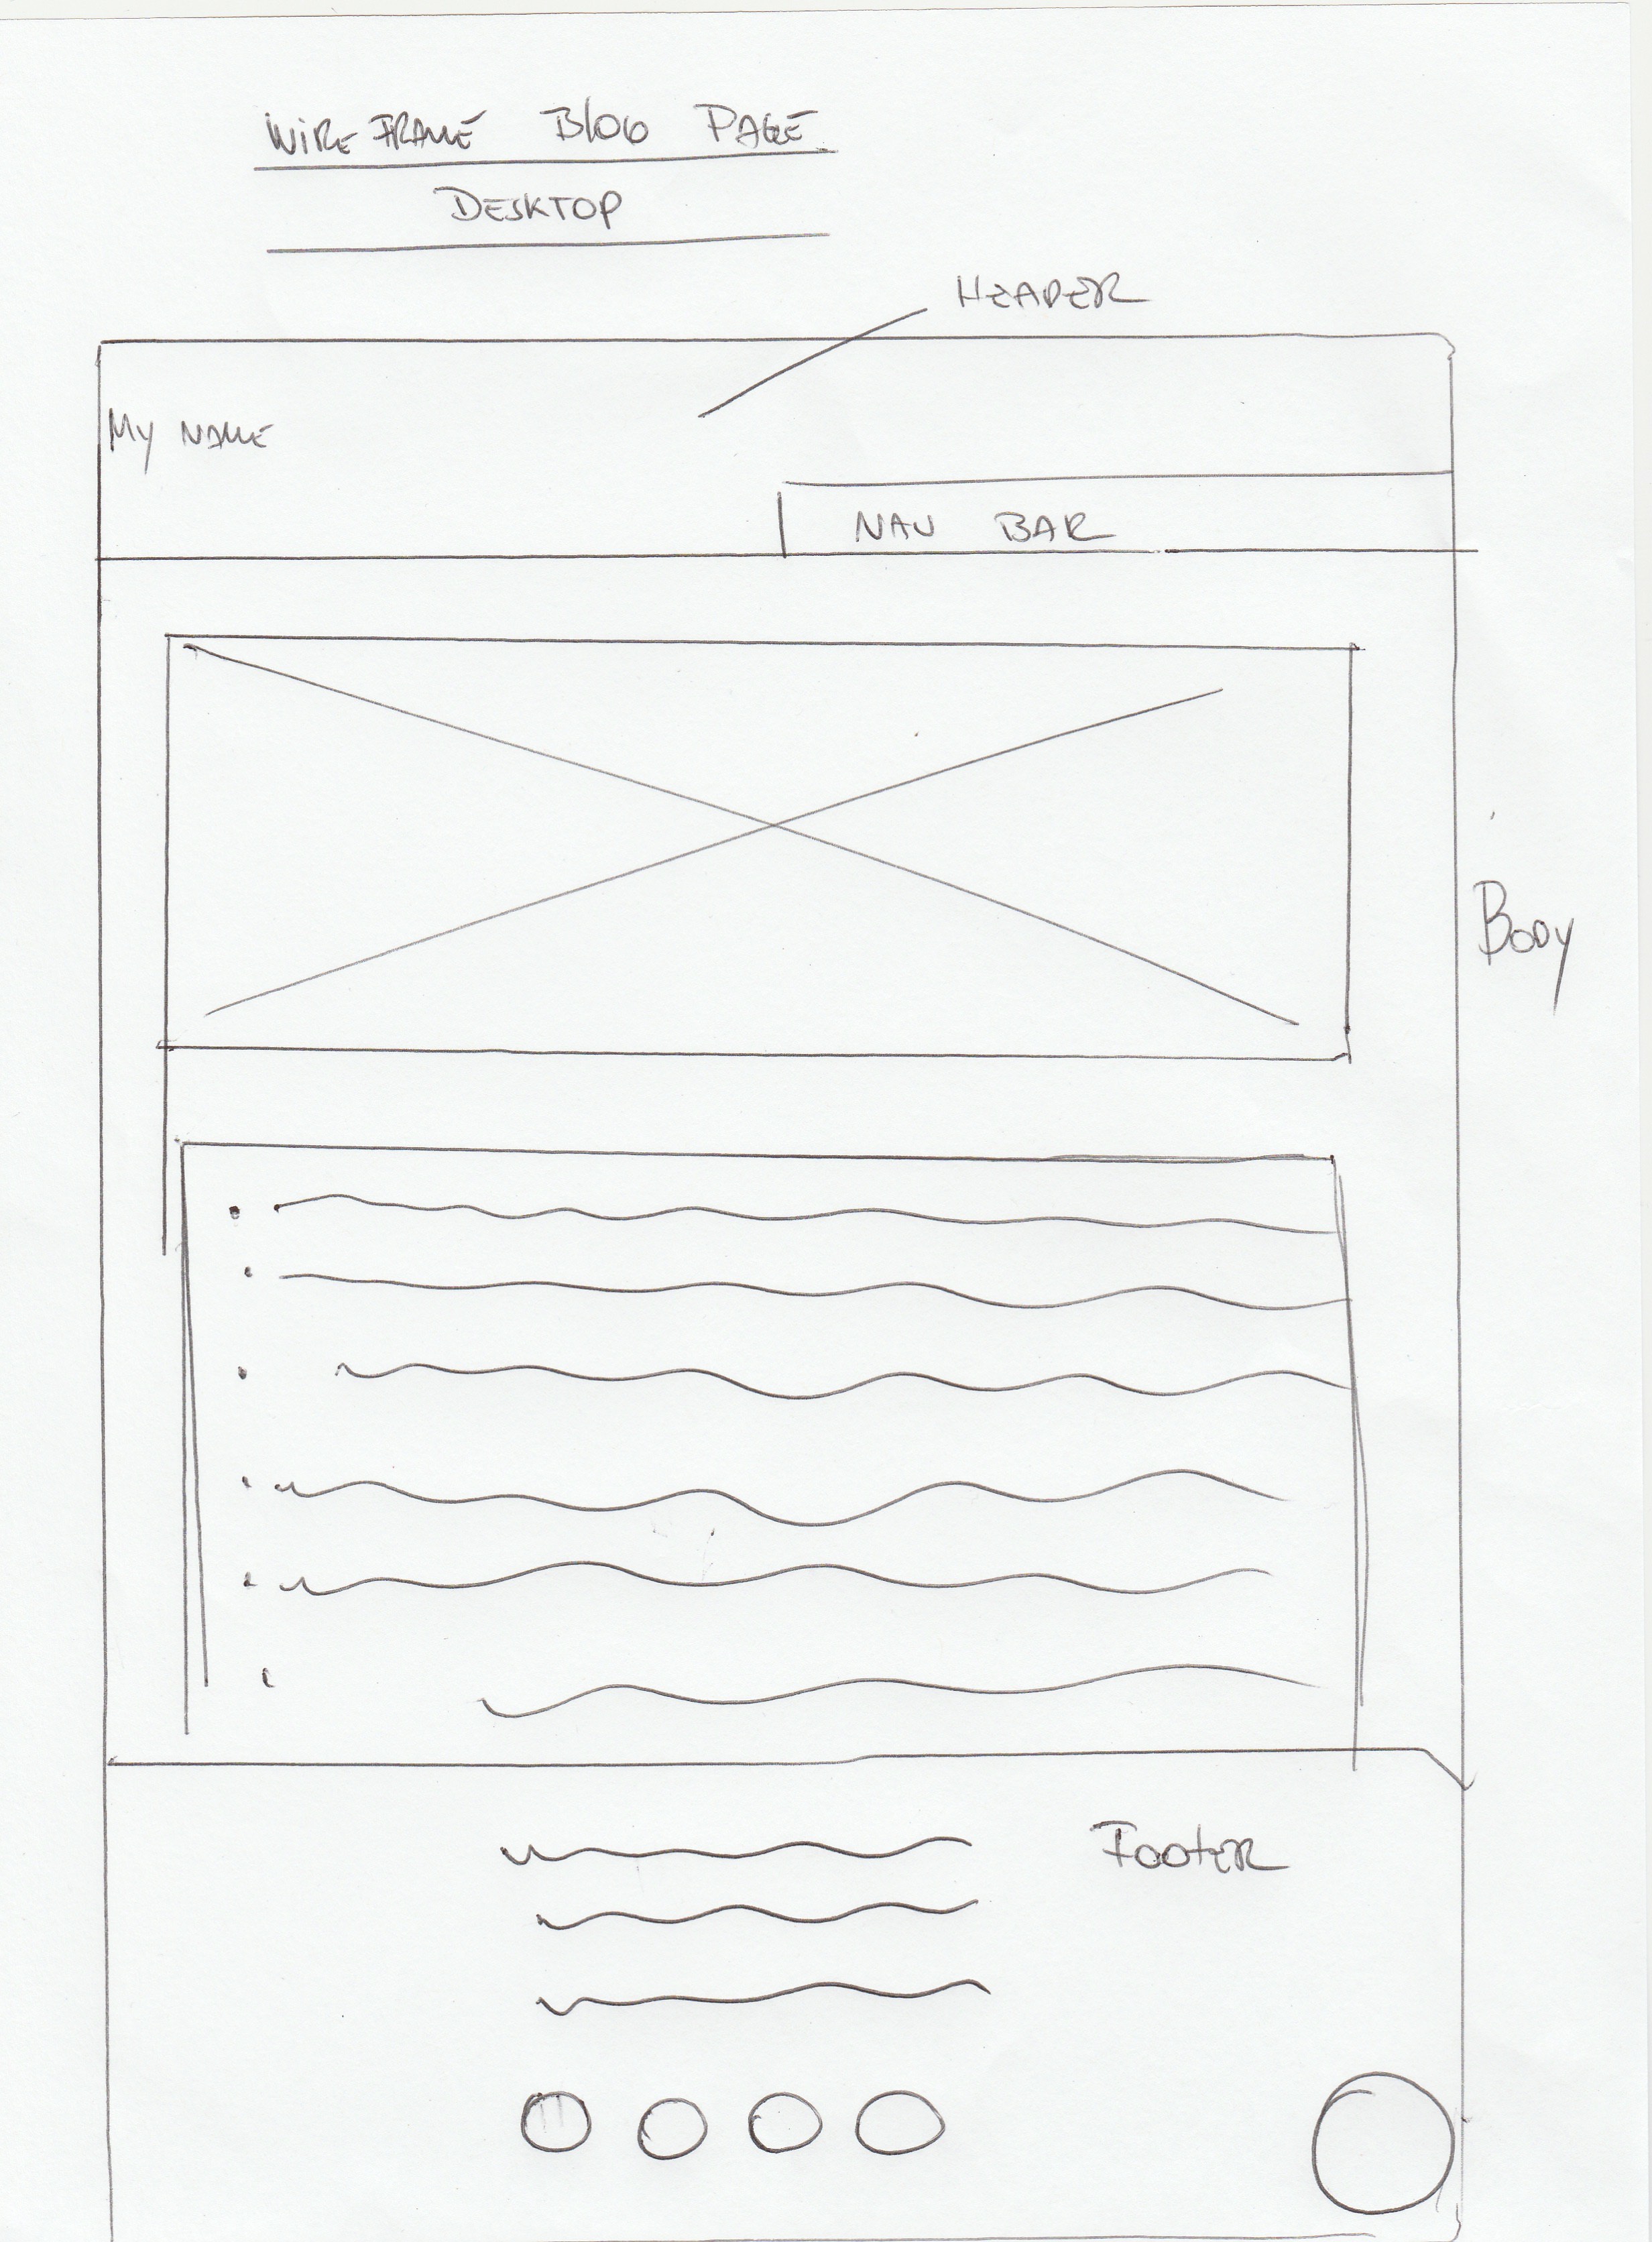 WIREFRAME BLOG PAGE
DESKTOP
HEADER
MY NAME
NAV BAR
BODY
FOOTER